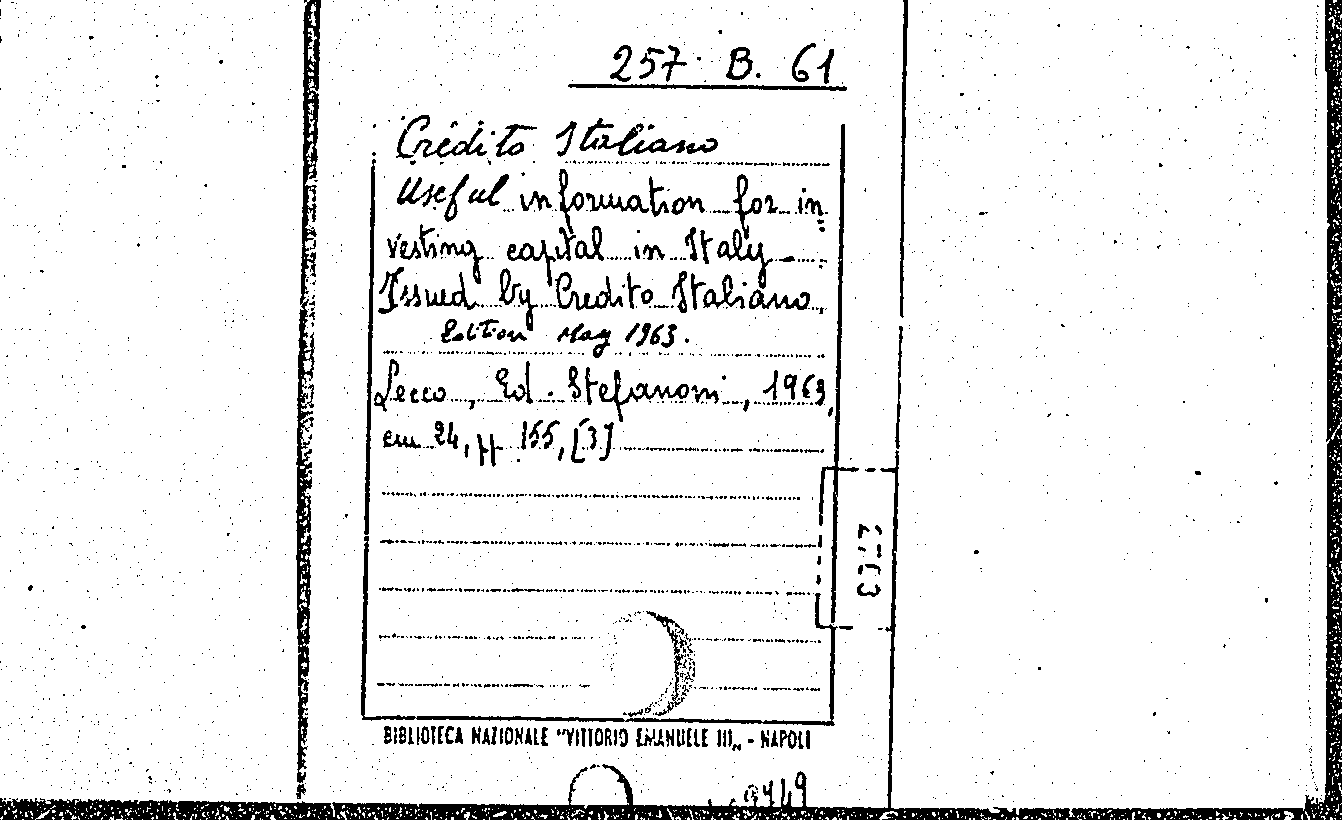 257 B. 61
Credito Italiano
Useful information for in=
vesting capital in Italy -
Issued by Credito Italiano.
Edition May 1963.
Lecco, Ed. Stefanoni, 1963,
cm 24, pp 155, [3]
BIBLIOTECA NAZIONALE "VITTORIO EMANUELE III„ - NAPOLI